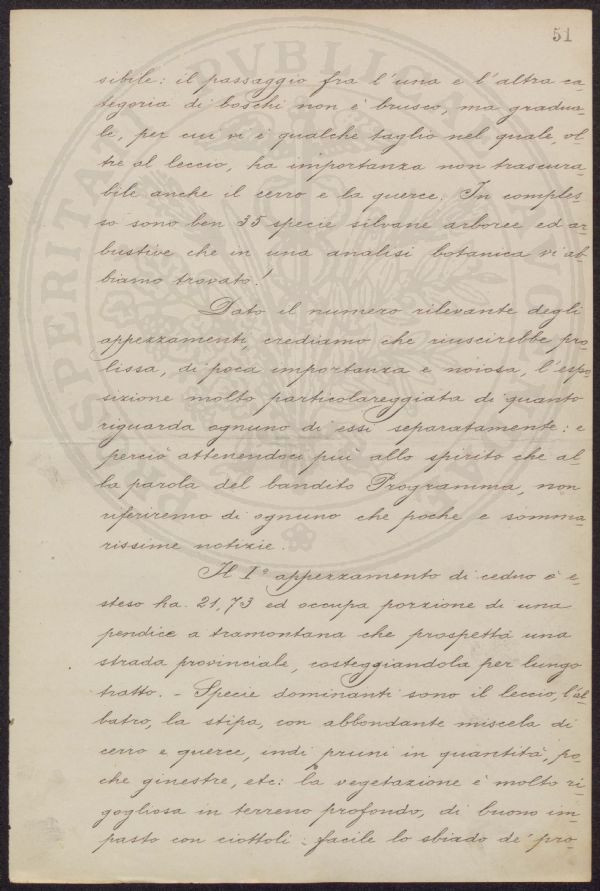 51
sibile: il passaggio fra l'una e l'altra ca-
tegoria di boschi non è brusco, ma gradua-
le, per cui vi è qualche taglio nel quale, ol-
tre al leccio, ha importanza non trascura-
bile anche il cerro e la querce. In comples-
so sono ben 35 specie silvane arboree ed ar-
bustive che in una analisi botanica vi ab-
biamo trovato!
Dato il numero rilevante degli
appezzamenti, crediamo che riuscirebbe pro-
lissa, di poca importanza e noiosa, l'espo-
sizione molto particolareggiata di quanto
riguarda ognuno di essi separatamente: e
perciò attenendoci più allo spirito che al-
la parola del bandito Programma, non
riferiremo di ognuno che poche e somma-
rissime notizie.
Il I° appezzamento di ceduo è e-
steso ha. 21,73 ed occupa porzione di una
pendice a tramontana che prospetta una
strada provinciale, costeggiandola per lungo
tratto. - Specie dominanti sono il leccio, l'al-
batro, la stipa, con abbondante miscela di
cerro e querce, indi pruni in quantità, po-
che ginestre, etc: la vegetazione è molto ri-
gogliosa in terreno profondo, di buono im-
pasto con ciottoli: facile lo sbiado de' pro-